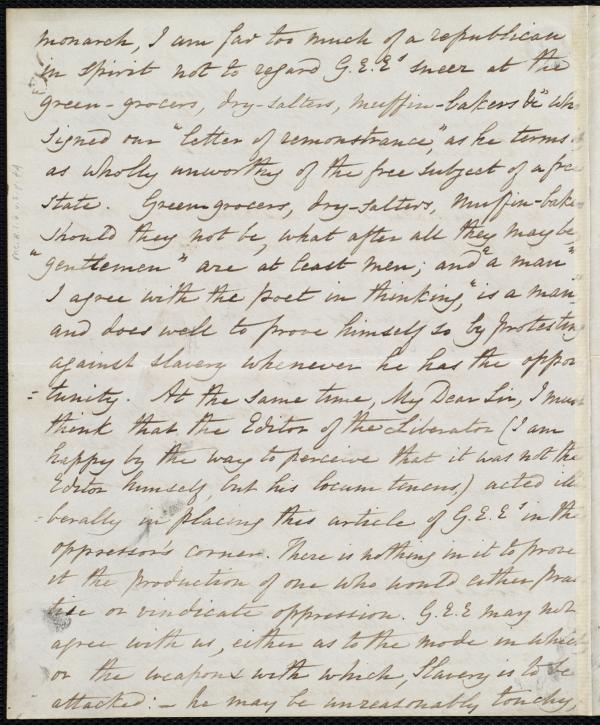 monarch, I am far too much of a republican
in spirit not to regard G.E.E's sneer at the
green-grocers, dry-salters, muffin-bakers &c who
signed our "letter of remonstrance", as he terms it
as wholly unworthy of the free subject of a free
state. Greengrocers, dry-salters, muffin-bakers
should they not be, what after all they may be,
"gentlemen" are at least men; and "a man"
I agree with the poet in thinking, "is a man"
and does well to prove himself so by protesting
against slavery whenever he has the oppor
=tunity. At the same time, My Dear Sir, I must
think that the Editor of the Liberator (I am
happy by the way to perceive that it was not the
Editor himself, but his locum tenens,) acted illi
=berally in placing this article of G.E.E's in the
oppressor's corner. There is nothing in it to prove
it the production of one who would either prac
tise or vindicate oppression. G.E.E may not
agree with us, either as to the mode in which
or the weapons with which, Slavery is to be
attacked: – he may be unreasonably touchy,